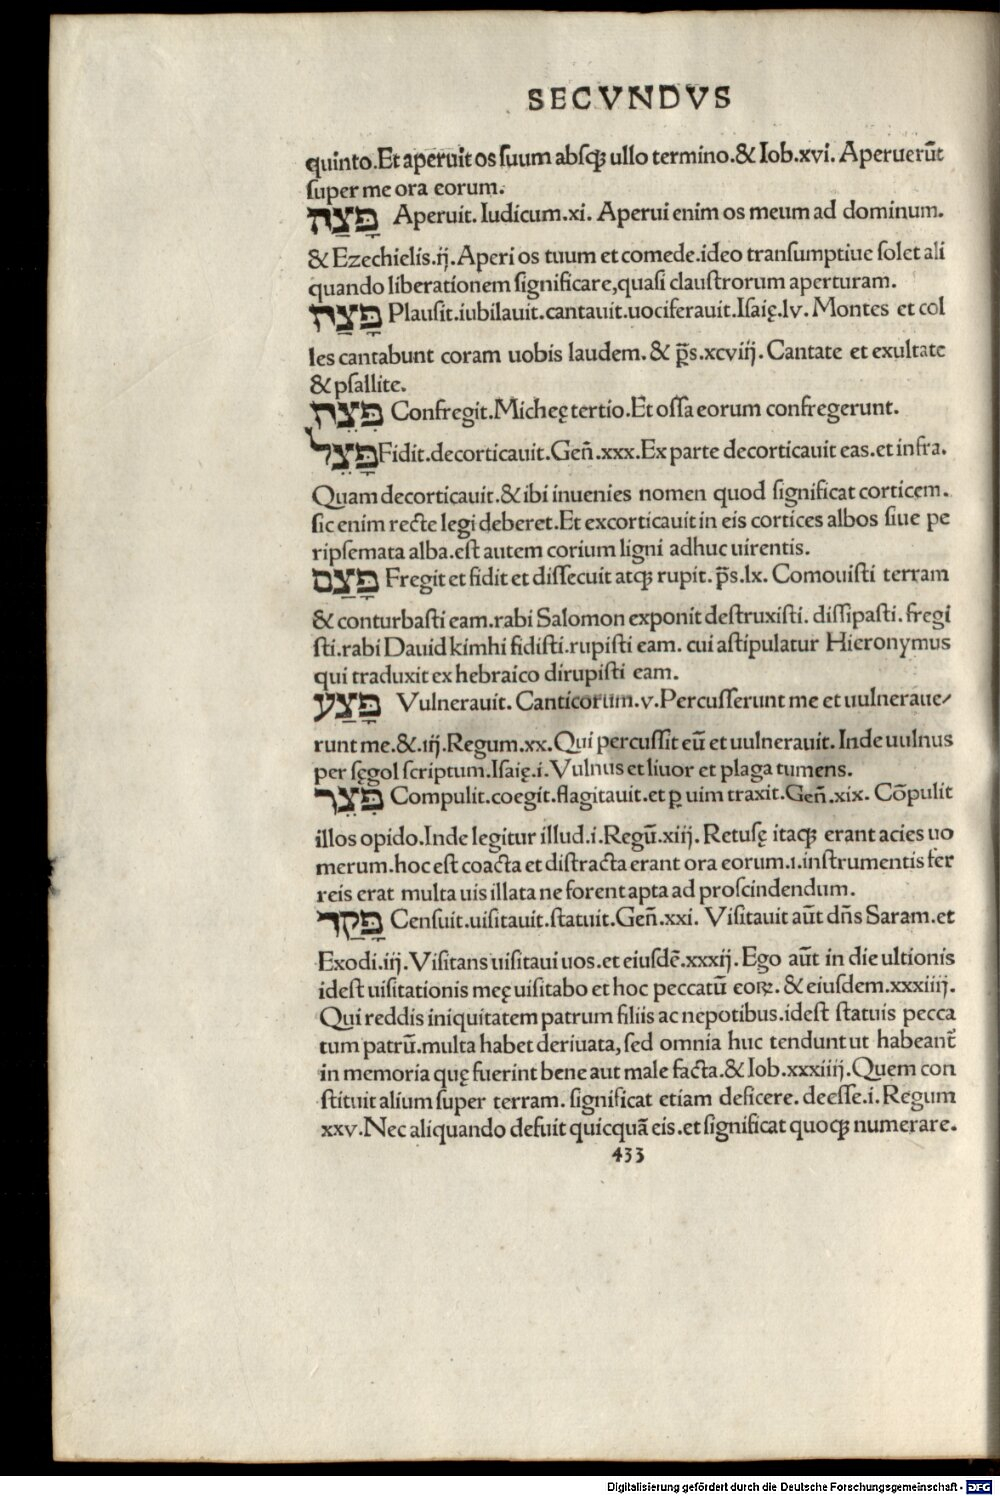 SECVNDVS
quinto.Et aperuit os ſuum abſqꝫ ullo termino.& Iob.xvi. Aperuerūt
ſuper me ora eorum.
פָּצַה Aperuit. Iudicum.xi. Aperui enim os meum ad dominum.
& Ezechielis.ij.Aperi os tuum et comede.ideo tranſumptiue ſolet ali
quando liberationem ſignificare,quaſi clauſtrorum aperturam.
פָּצַח Plauſit.iubilauit.cantauit.uociferauit.Iſaię.lv. Montes et col
les cantabunt coram uobis laudem. & p̄s.xcviij. Cantate et exultate
& pſallite.
פִּצֵח Confregit.Micheę tertio.Et oſſa eorum confregerunt.
פָּצֵל Fidit.decorticauit.Geñ.xxx.Ex parte decorticauit eas.et infra.
Quam decorticauit.& ibi inuenies nomen quod ſignificat corticem.
ſic enim recte legi deberet.Et excorticauit in eis cortices albos ſiue pe
ripſemata alba.eſt autem corium ligni adhuc uirentis.
פָּצַם Fregit et fidit et diſſecuit atqꝫ rupit. p̄s.lx. Comouiſti terram
& conturbaſti eam.rabi Salomon exponit deſtruxiſti. diſſipaſti. fregi
ſti.rabi Dauid kimhi fidiſti.rupiſti eam. cui aſtipulatur Hieronymus
qui traduxit ex hebraico dirupiſti eam.
פָּצַע Vulnerauit. Canticorum.v.Percuſſerunt me et uulneraue/
runt me.&.iij.Regum.xx.Qui percuſſit eū et uulnerauit. Inde uulnus
per ſęgol ſcriptum.Iſaię.i.Vulnus et liuor et plaga tumens.
פִּצֵר Compulit.coegit.flagitauit.et ꝑ uim traxit.Geñ.xix. Cōpulit
illos opido.Inde legitur illud.i.Regū.xiij. Retuſę itaqꝫ erant acies uo
merum.hoc eſt coacta et diſtracta erant ora eorum.ı.inſtrumentis fer
reis erat multa uis illata ne forent apta ad proſcindendum.
פָּקַד Cenſuit.uiſitauit.ſtatuit.Geñ.xxi. Viſitauit aūt dñs Saram.et
Exodi.iij.Viſitans uiſitaui uos.et eiuſdē.xxxij. Ego aūt in die ultionis
ideſt uiſitationis meę uiſitabo et hoc peccatū eoꝝ. & eiuſdem.xxxiiij.
Qui reddis iniquitatem patrum filiis ac nepotibus.ideſt ſtatuis pecca
tum patrū.multa habet deriuata,ſed omnia huc tendunt ut habeant̄
in memoria quę fuerint bene aut male facta.& Iob.xxxiiij.Quem con
ſtituit alium ſuper terram. ſignificat etiam deficere. deeſſe.i.Regum
xxv.Nec aliquando defuit quicquā eis.et ſignificat quoqꝫ numerare.
433
Digitalisierung gefördert durch die Deutsche Forschungsgemeinschaft - DFG